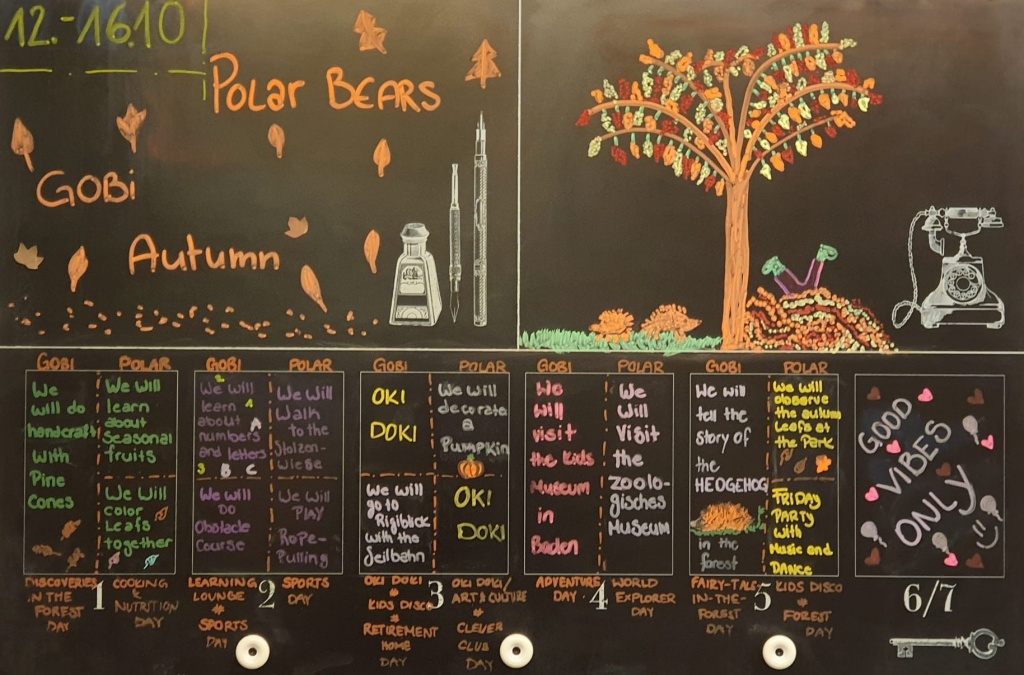 12.-16.10
POLAR BEARS
GOBI
Autumn
GOBI
We
will do
handcraft
with
Pine
cones
DISCOVERIES
IN THE
FOREST
DAY
POLAR
We Will
learn
about
Seasonal
fruits
We Will
color
Leafs
together
COOKING
&
NUTRITION
DAY
1
GOBI
2
We will
learn 1
about A
numbers
and letters
3 B C
We will
DO
Obstacle
Course
LEARNING
LOUNGE
*
SPORTS
DAY
POLAR
We Will
Walk
to the
Stolzen-
wiese
We will
PLAY
Rope-
Pulling
SPORTS
DAY
2
GOBI
OKI
DOKI
We will
go to
Rigiblick
with the
Seilbahn
OKI DOKI
*
KIDS DISCO
*
RETIREMENT
HOME
DAY
POLAR
We will
decorate
a
Pumpkin
OKI
DOKI
OKI DOKI/
ART & CULTURE
*
CLEVER
CLUB
DAY
3
GOBI
We
will
visit
the Kids
Museum
in
Baden
ADVENTURE
DAY
POLAR
We
Will
Visit
the
zoolo-
gisches
Museum
WORLD
EXPLORER
DAY
4
GOBI
We will
tell the
story of
the
HEDGEHOG
in the
forest
FAIRY-TALE-
IN-THE-
FOREST
DAY
POLAR
We will
observe
the autumn
Leafs at
the Park
FRIDAY
PARTY
with
Music and
DANCE
KIDS DISCO
*
FOREST
DAY
5
GOOD
VIBES
ONLY
6/7